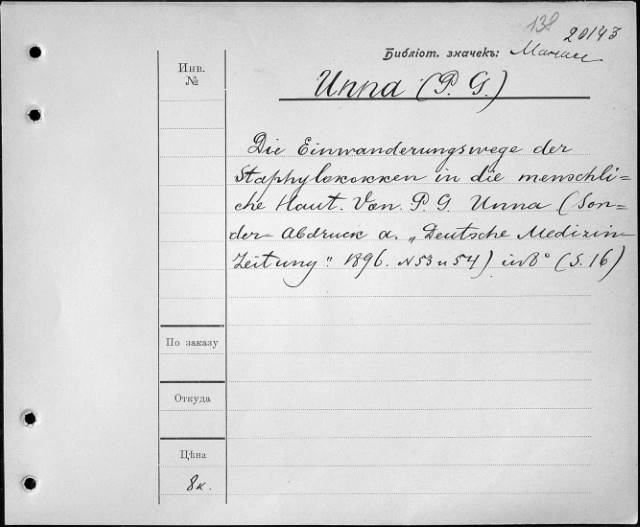 138 20143
Библіот. значекъ:
Инв.
№
Unna (P. G.)
Die Einwanderungswege der
Staphylokokken in die menschli=
che Haut. Von P. G. Unna (Son=
der-Abdruck a. „Deutsche Medizin.
Zeitung". 1896. N 53 u 54) in 8° (S. 16)
По заказу
Откуда
Цѣна
8 к.